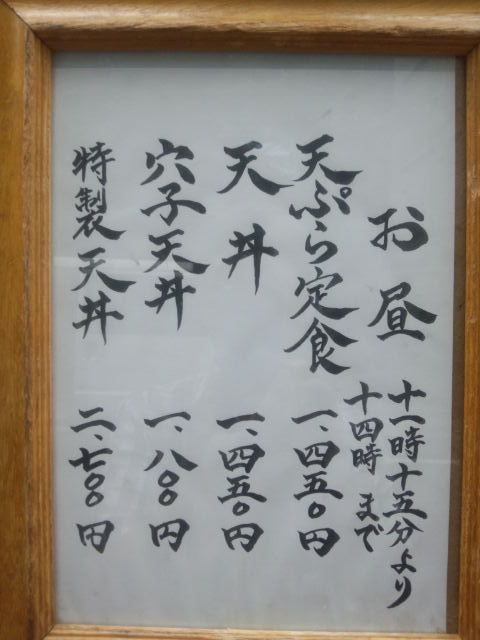 お昼
十一時十五分より
十四時 まで
天ぷら定食 一、四五〇円
天丼 一、四五〇円
穴子天丼 一、八〇〇円
特製天丼 二、七〇〇円